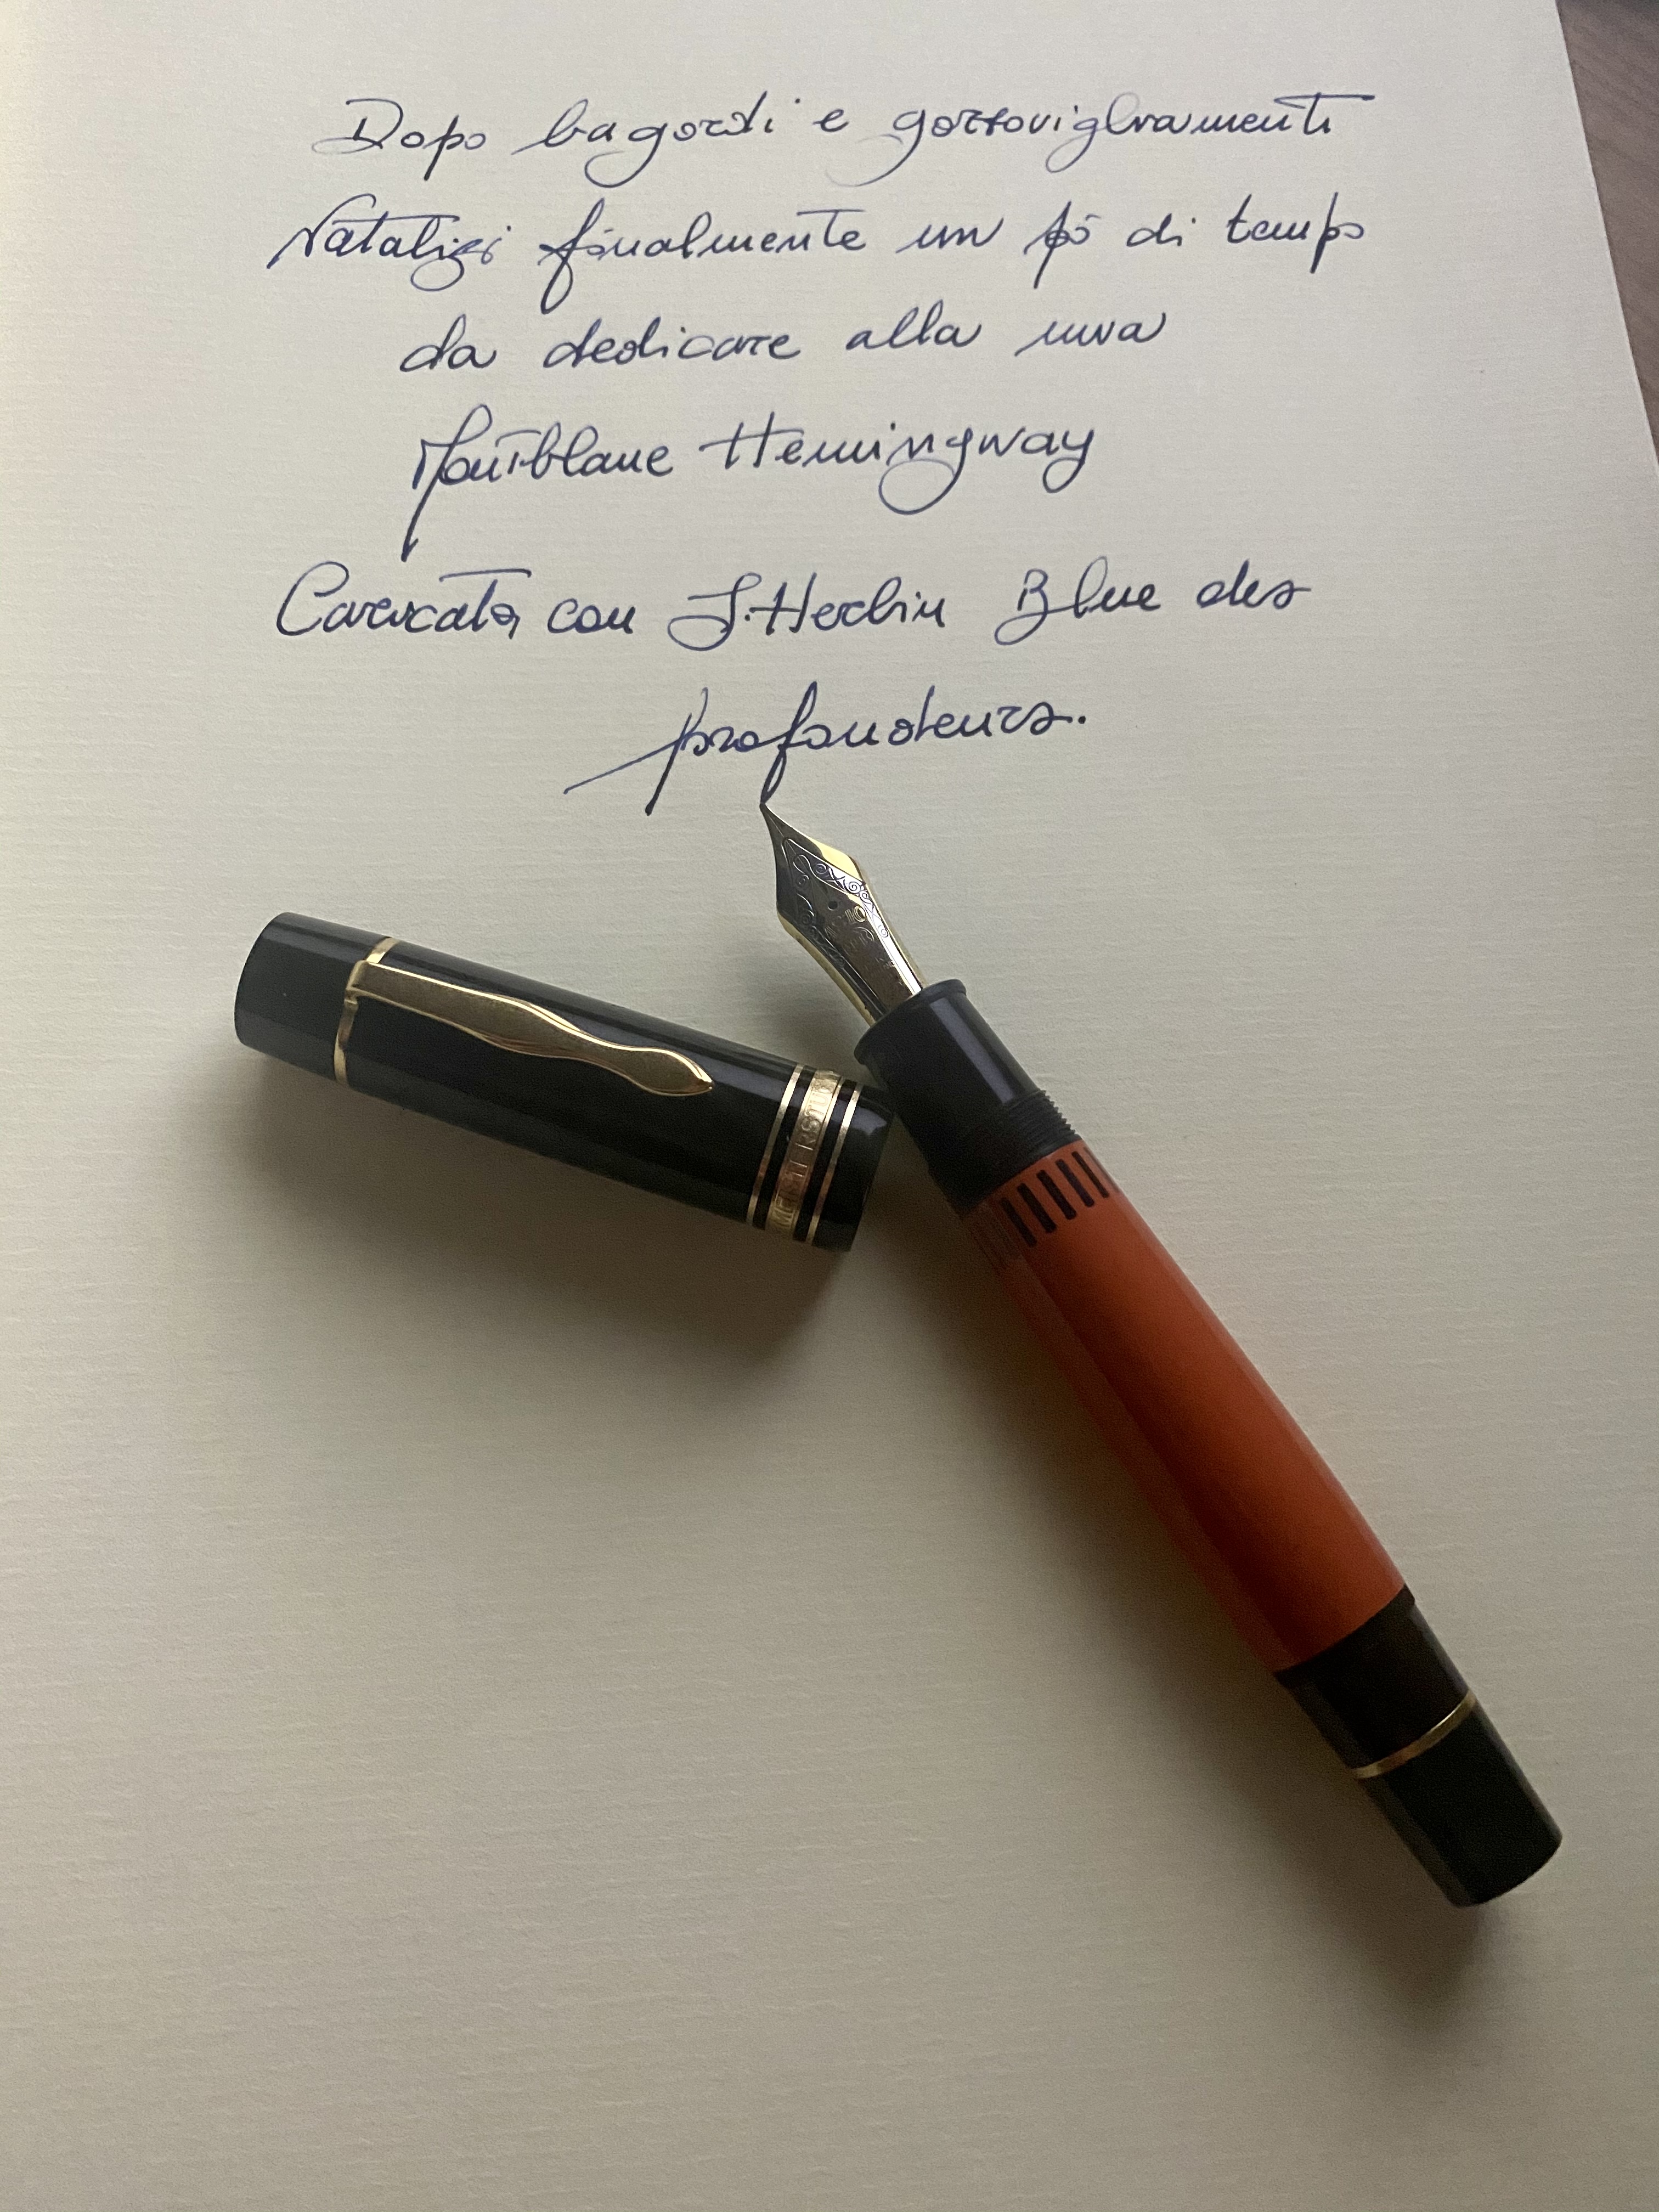 Dopo bagordi e gozzovigliamenti
Natalizi finalmente un pò di tempo
da dedicare alla mia
Montblanc Hemingway
Caricata con J.Herbin Blue des
profondeurs.
MEISTERSTÜ